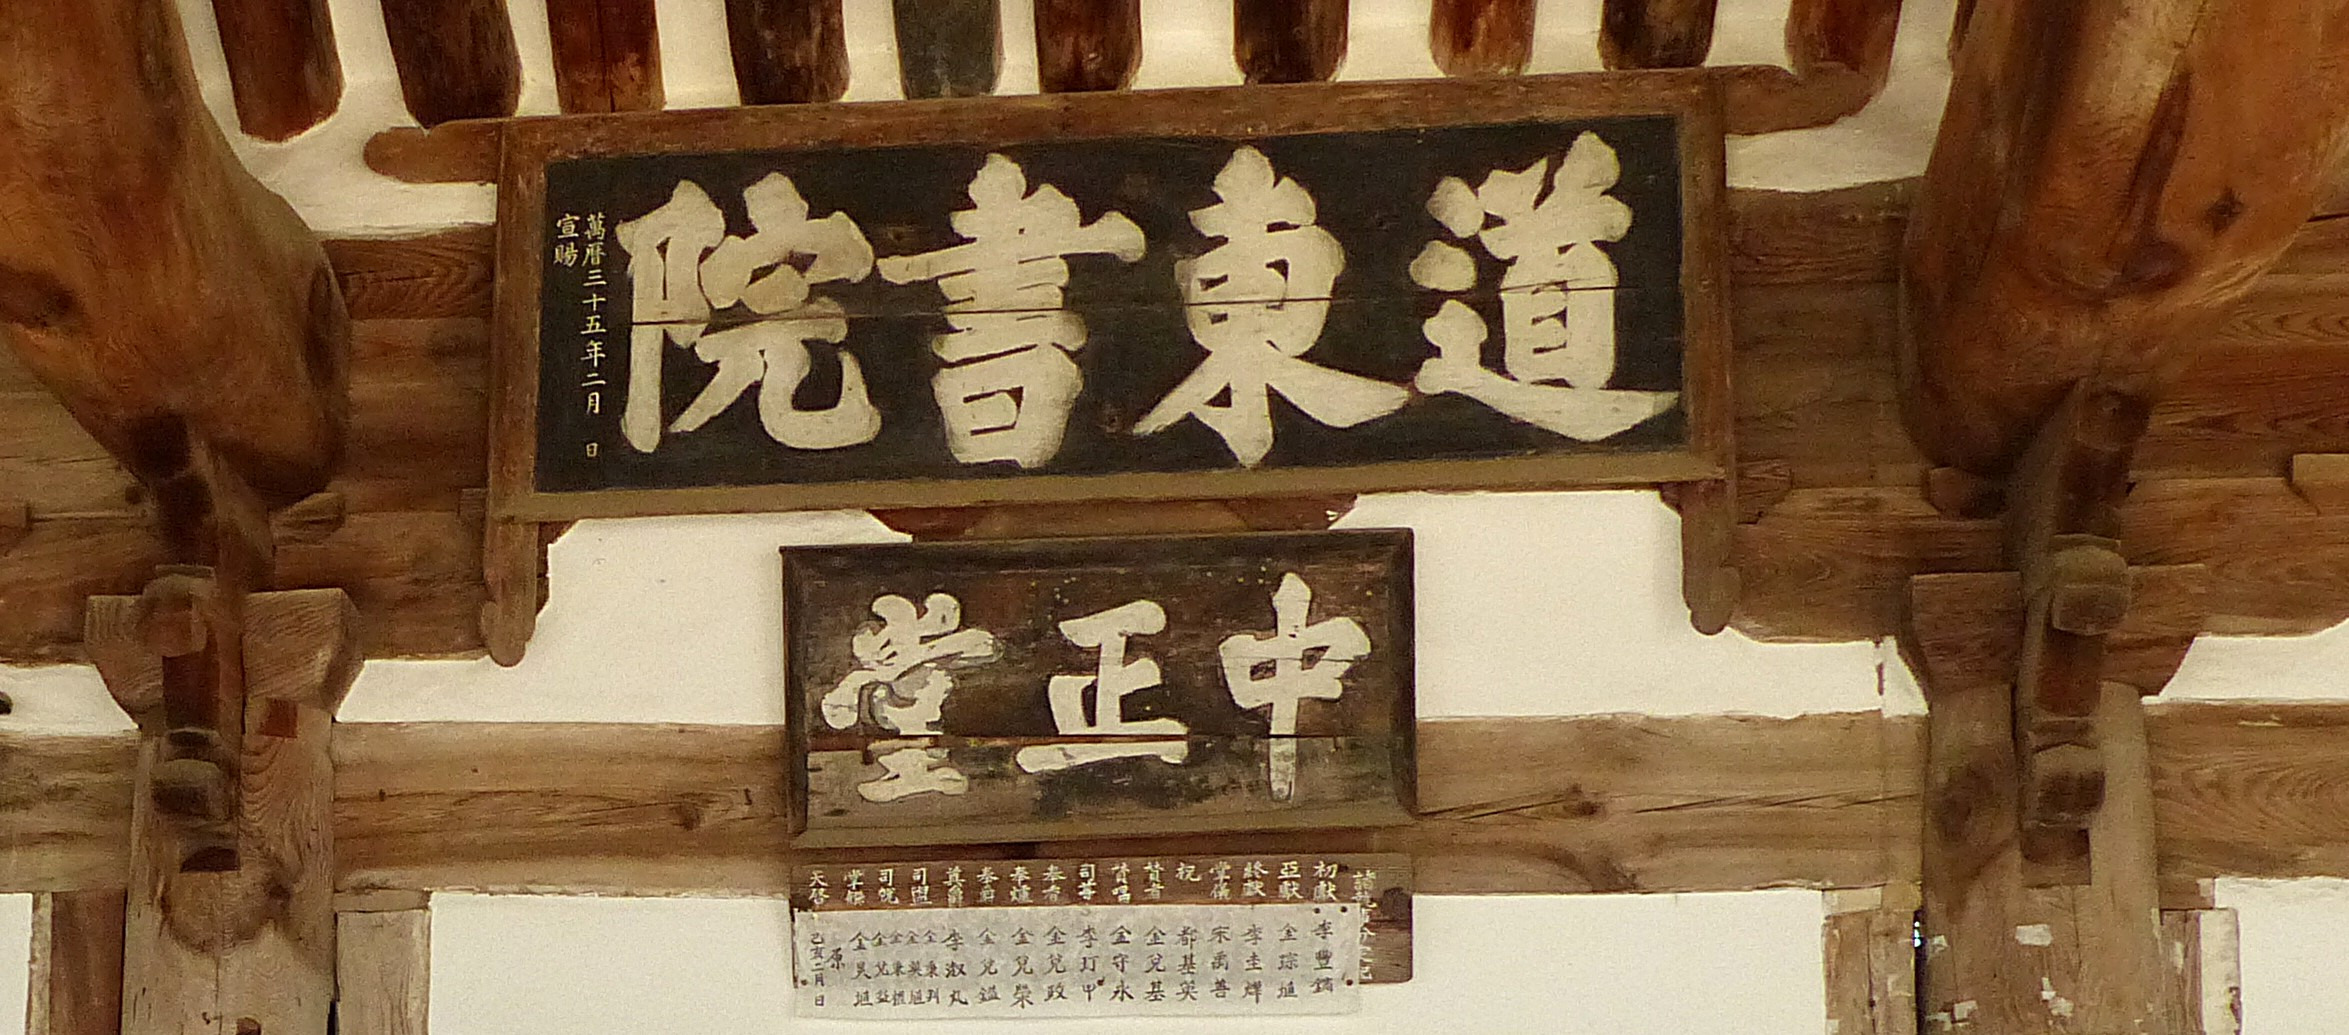 道東書院
萬曆三十五年二月 日
宣賜
中正堂
初獻 李豐鏞
亞獻 金琮埴
終獻 李圭燁
掌儀 宋禹善
祝 都基英
贊者 金兌基
贊唱 金守永
司尊 李玎中
奉香 金兌政
奉爐 金兌榮
奉爵 金兌鎰
奠爵 李淑丸
司盥 金秉列 金英埴
司帨 金秉 金兌益
掌饌 金昊埴
天啓 乙亥二月 日